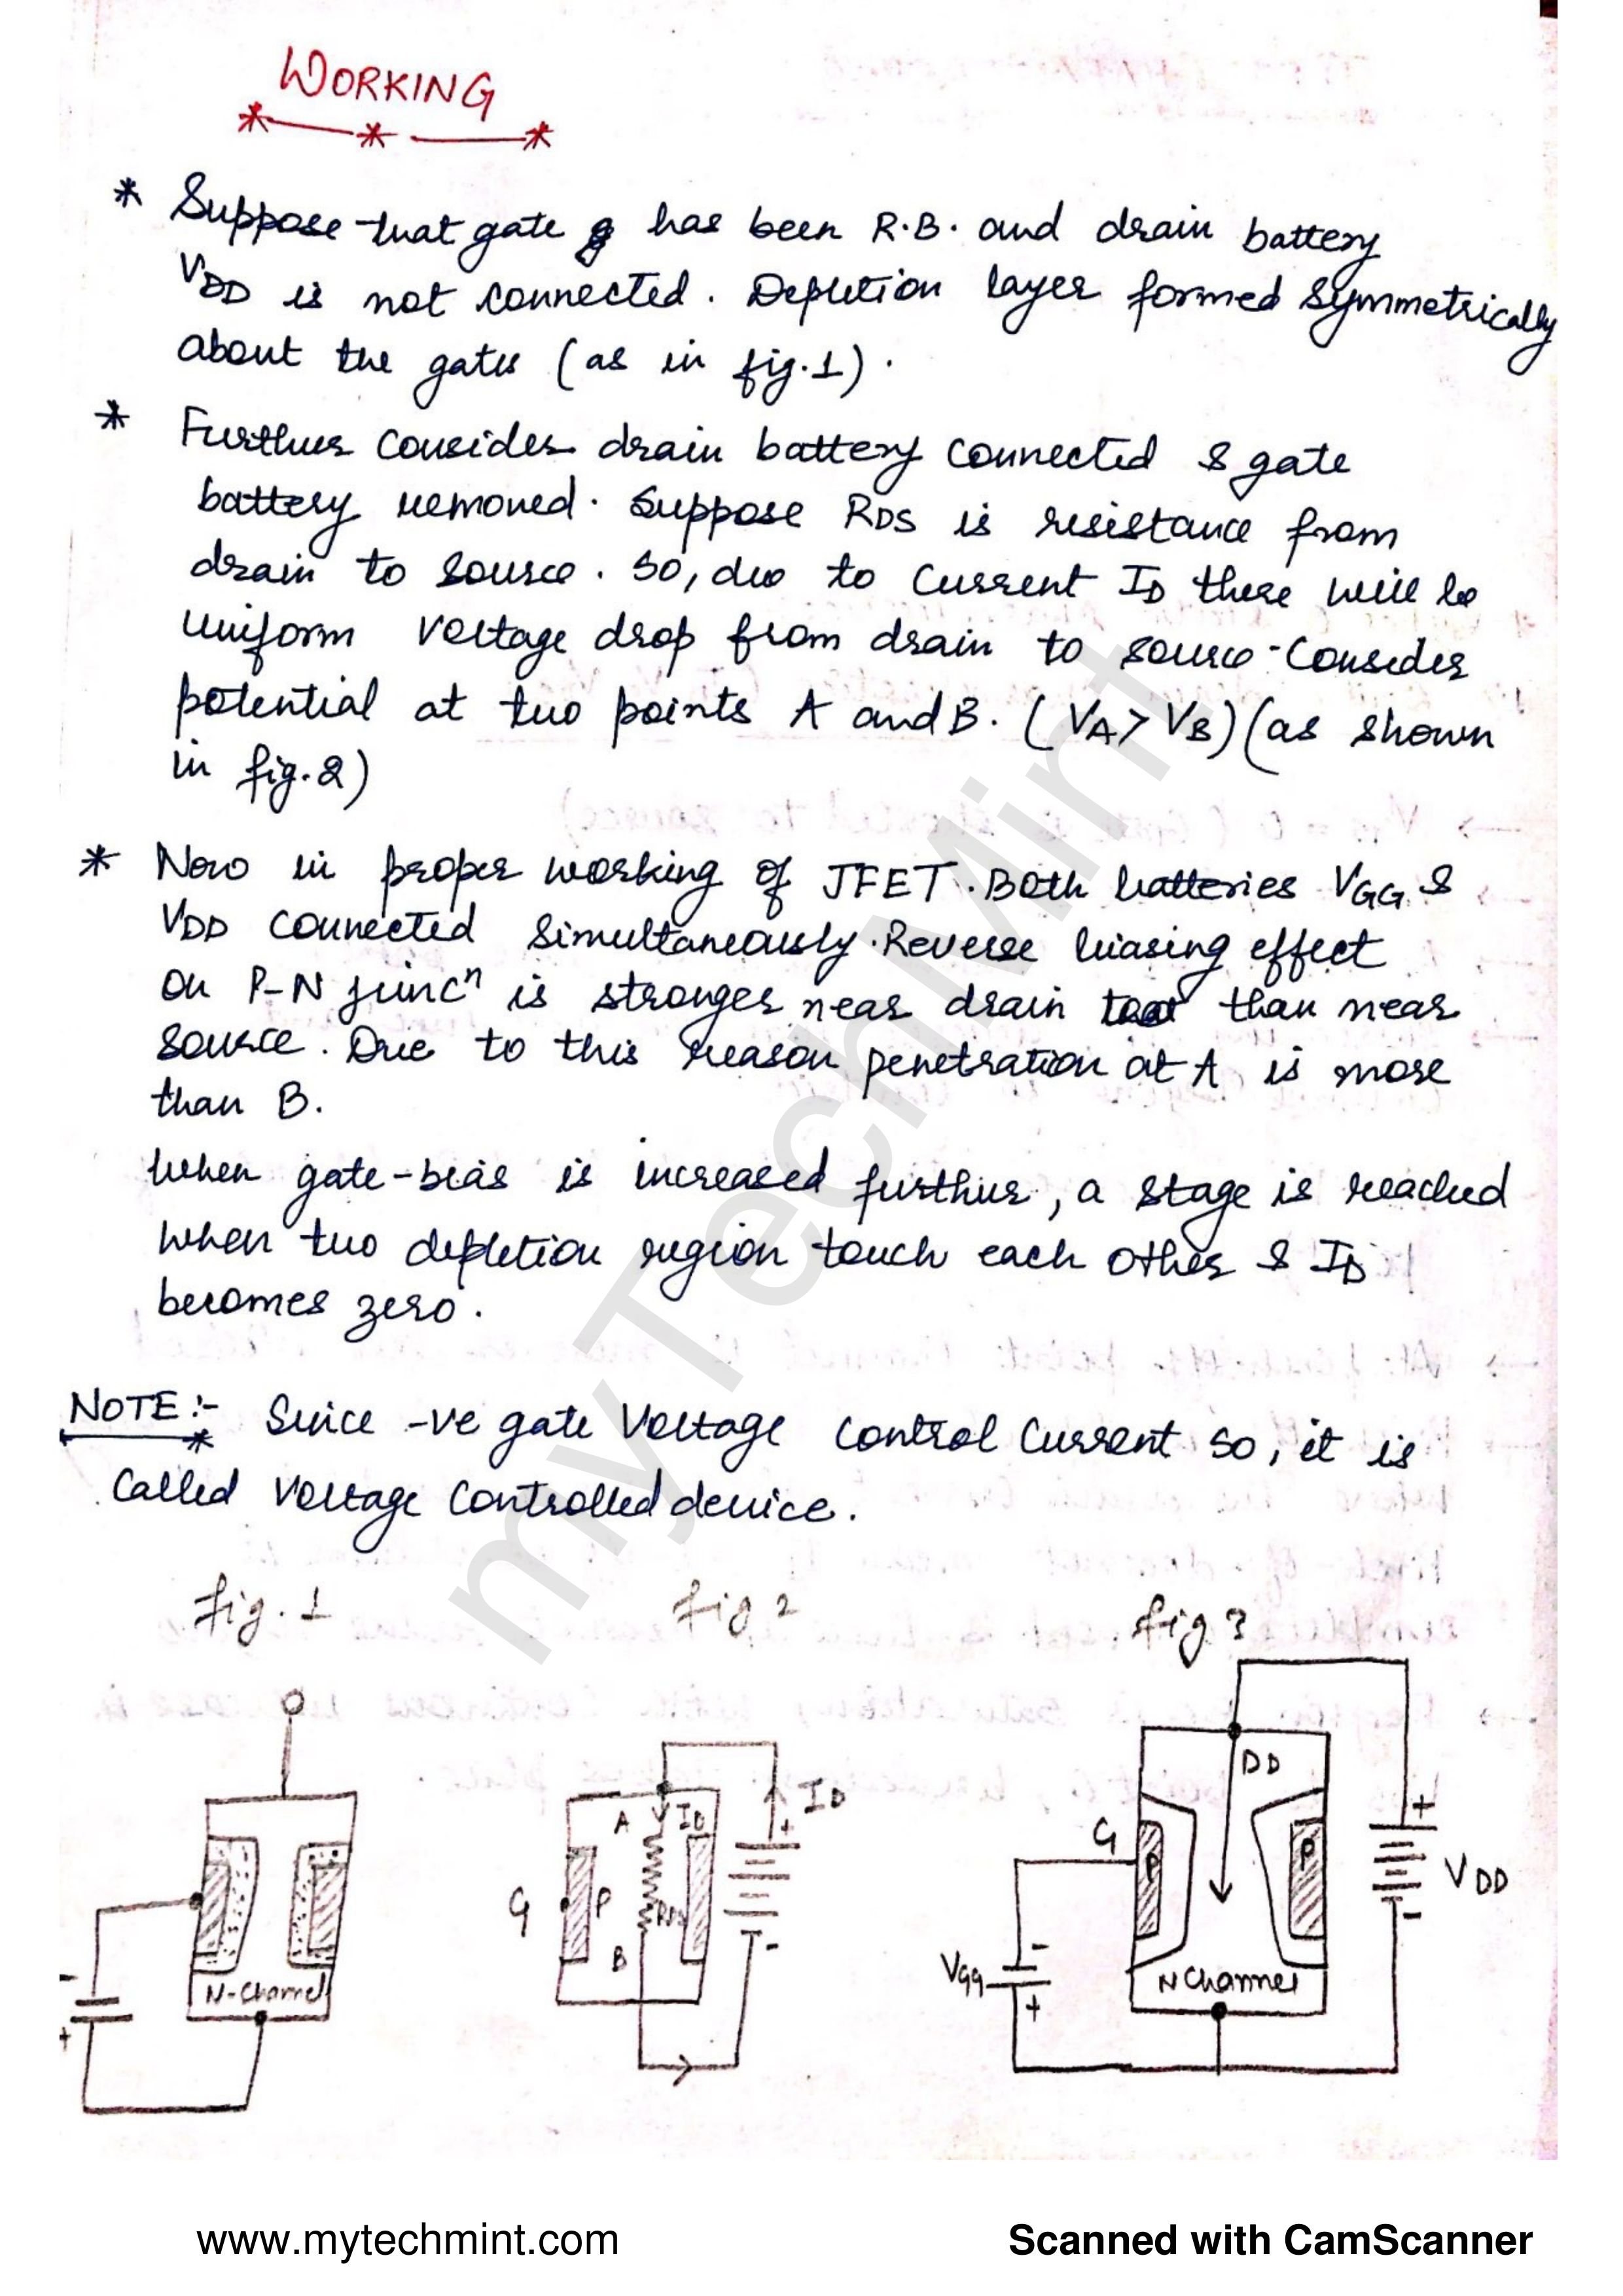 WORKING
* Suppose that gate g has been R.B. and drain battery
VDD is not connected. Depletion layer formed symmetrically
about the gates (as in fig.1).
* Further Consider drain battery connected & gate
battery removed. Suppose RDS is resistance from
drain to source. So, due to current ID there will be
uniform voltage drop from drain to source. Consider
potential at two points A and B. (VA > VB) (as shown
in fig.2)
* Now in proper working of JFET. Both batteries VGG &
VDD connected simultaneously. Reverse biasing effect
on P-N juncn is stronger near drain than near
source. Due to this reason penetration at A is more
than B.
When gate-bias is increased further, a stage is reached
when two depletion region touch each other & ID
becomes zero.
NOTE:- Since -ve gate Voltage Control Current so, it is
Called Voltage Controlled device.
fig. 1 fig 2 fig 3
N-Channel
-
+
A
ID
ID
+
G
P
RDS
B
-
DD
G
P
P
+
VDD
-
VGG
-
+
N Channel
myTechMint
www.mytechmint.com
Scanned with CamScanner